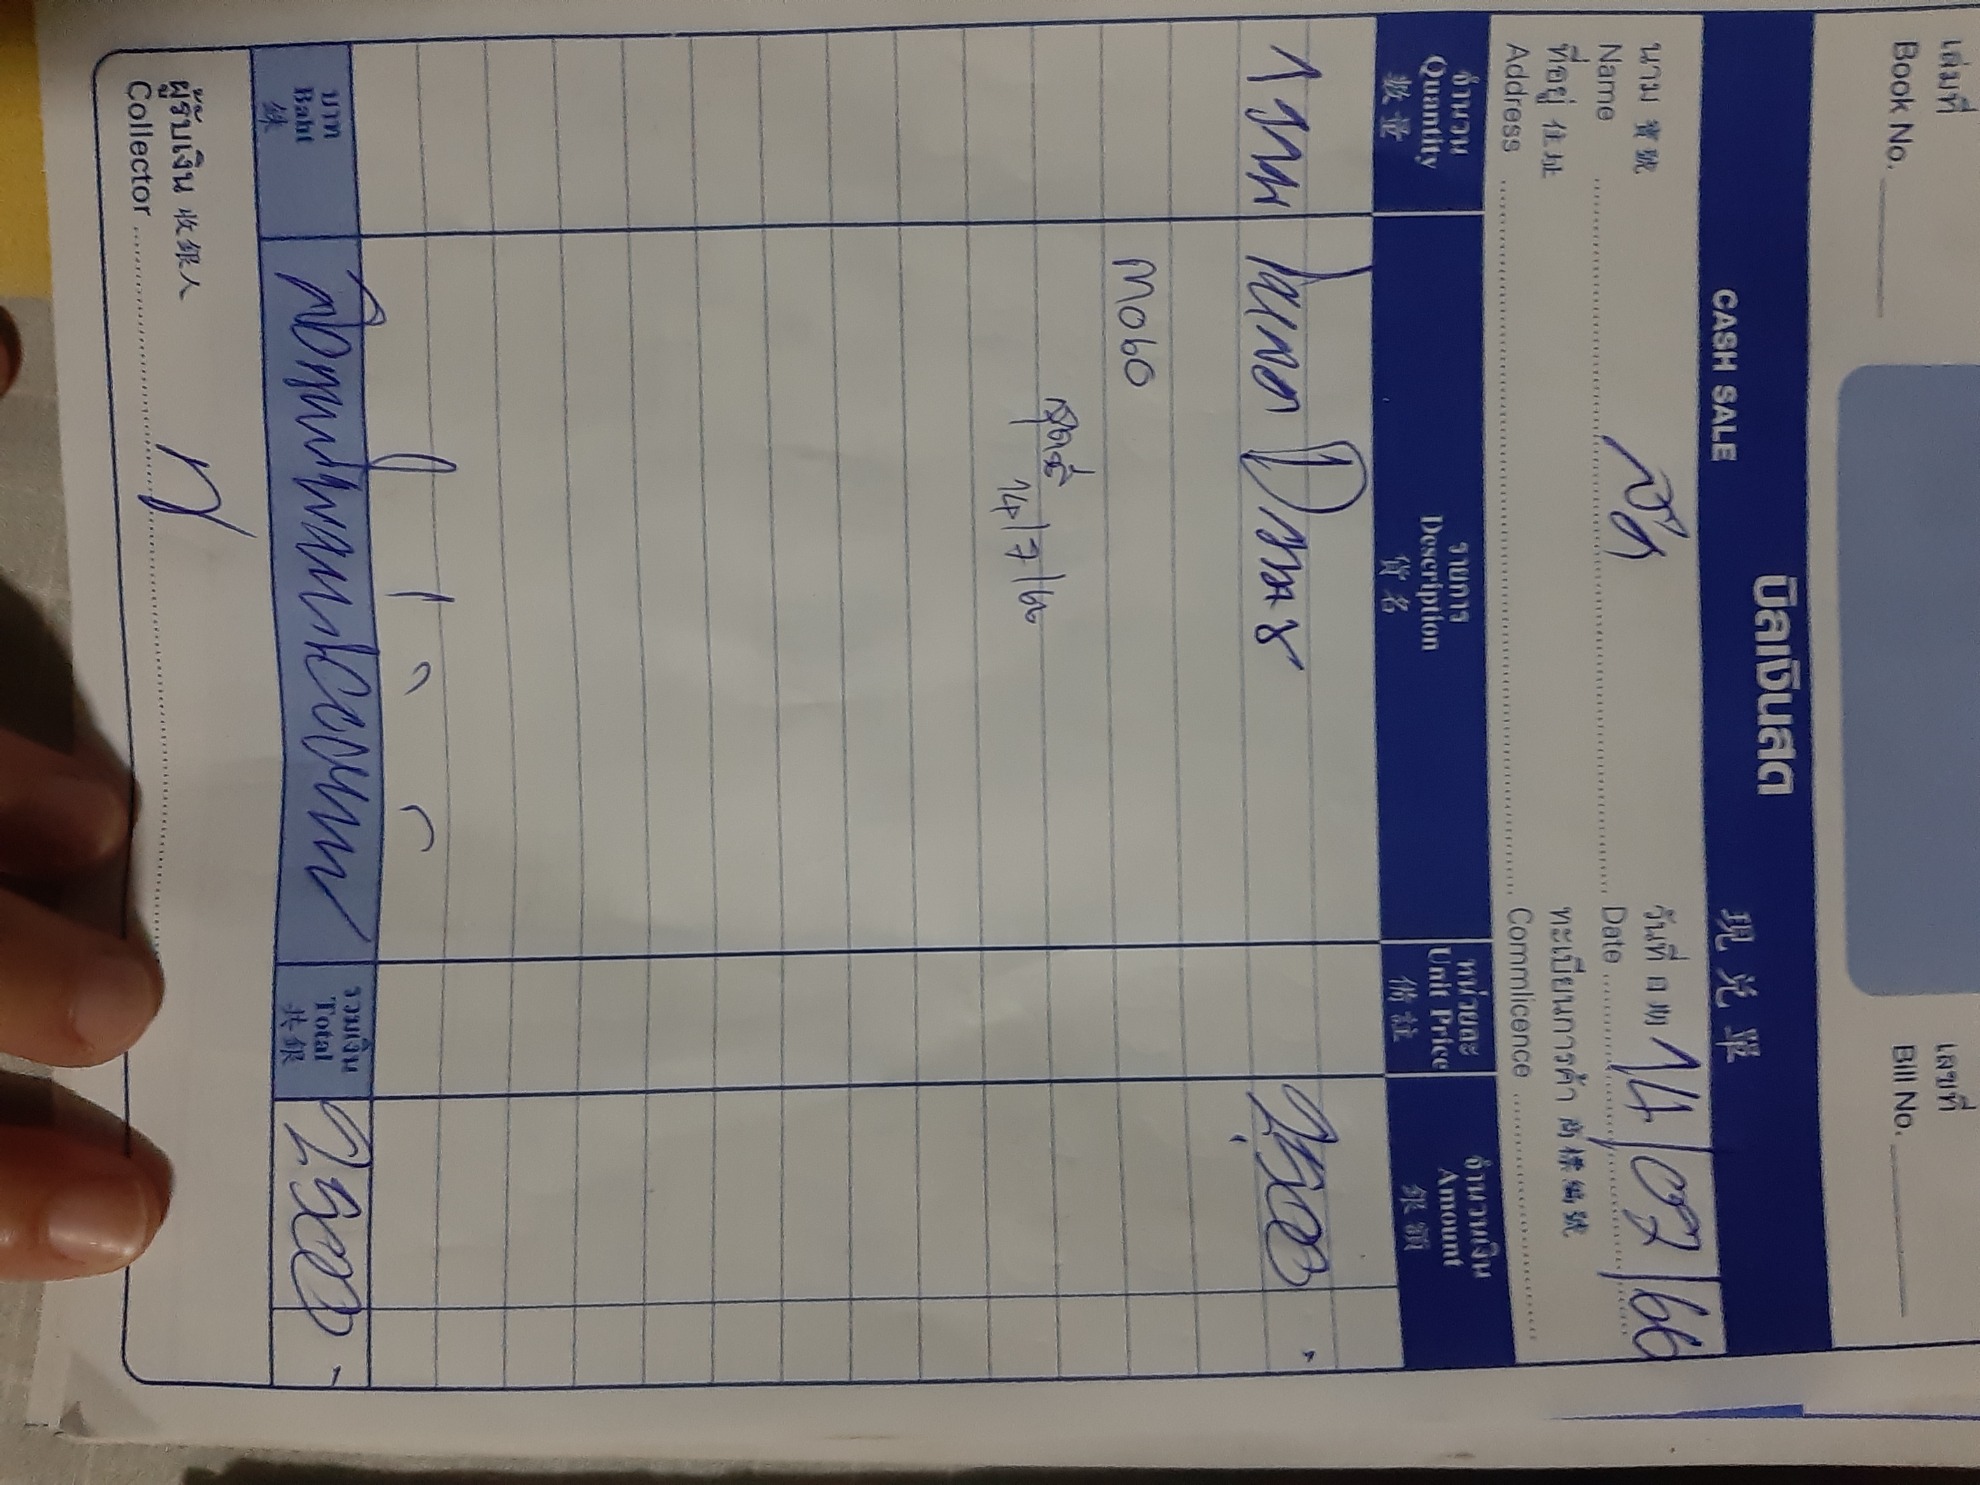 เล่มที่ เลขที่
Book No. Bill No.
บิลเงินสด
CASH SALE 現兑單
นาม 寶號 วันที่ 日期 14/07/66
Name Date
ที่อยู่ 住址 ทะเบียนการค้า 商標編號
Address Commlicence
จำนวน รายการ หน่วยละ จำนวนเงิน
Quantity Description Unit Price Amount
數量 貨名 價註 銀額
2,500 -
0900
14/7/66
บาท รวมเงิน
Baht สองพันห้าร้อยบาท Total 2500 -
銖 共銀
ผู้รับเงิน 收銀人
Collector